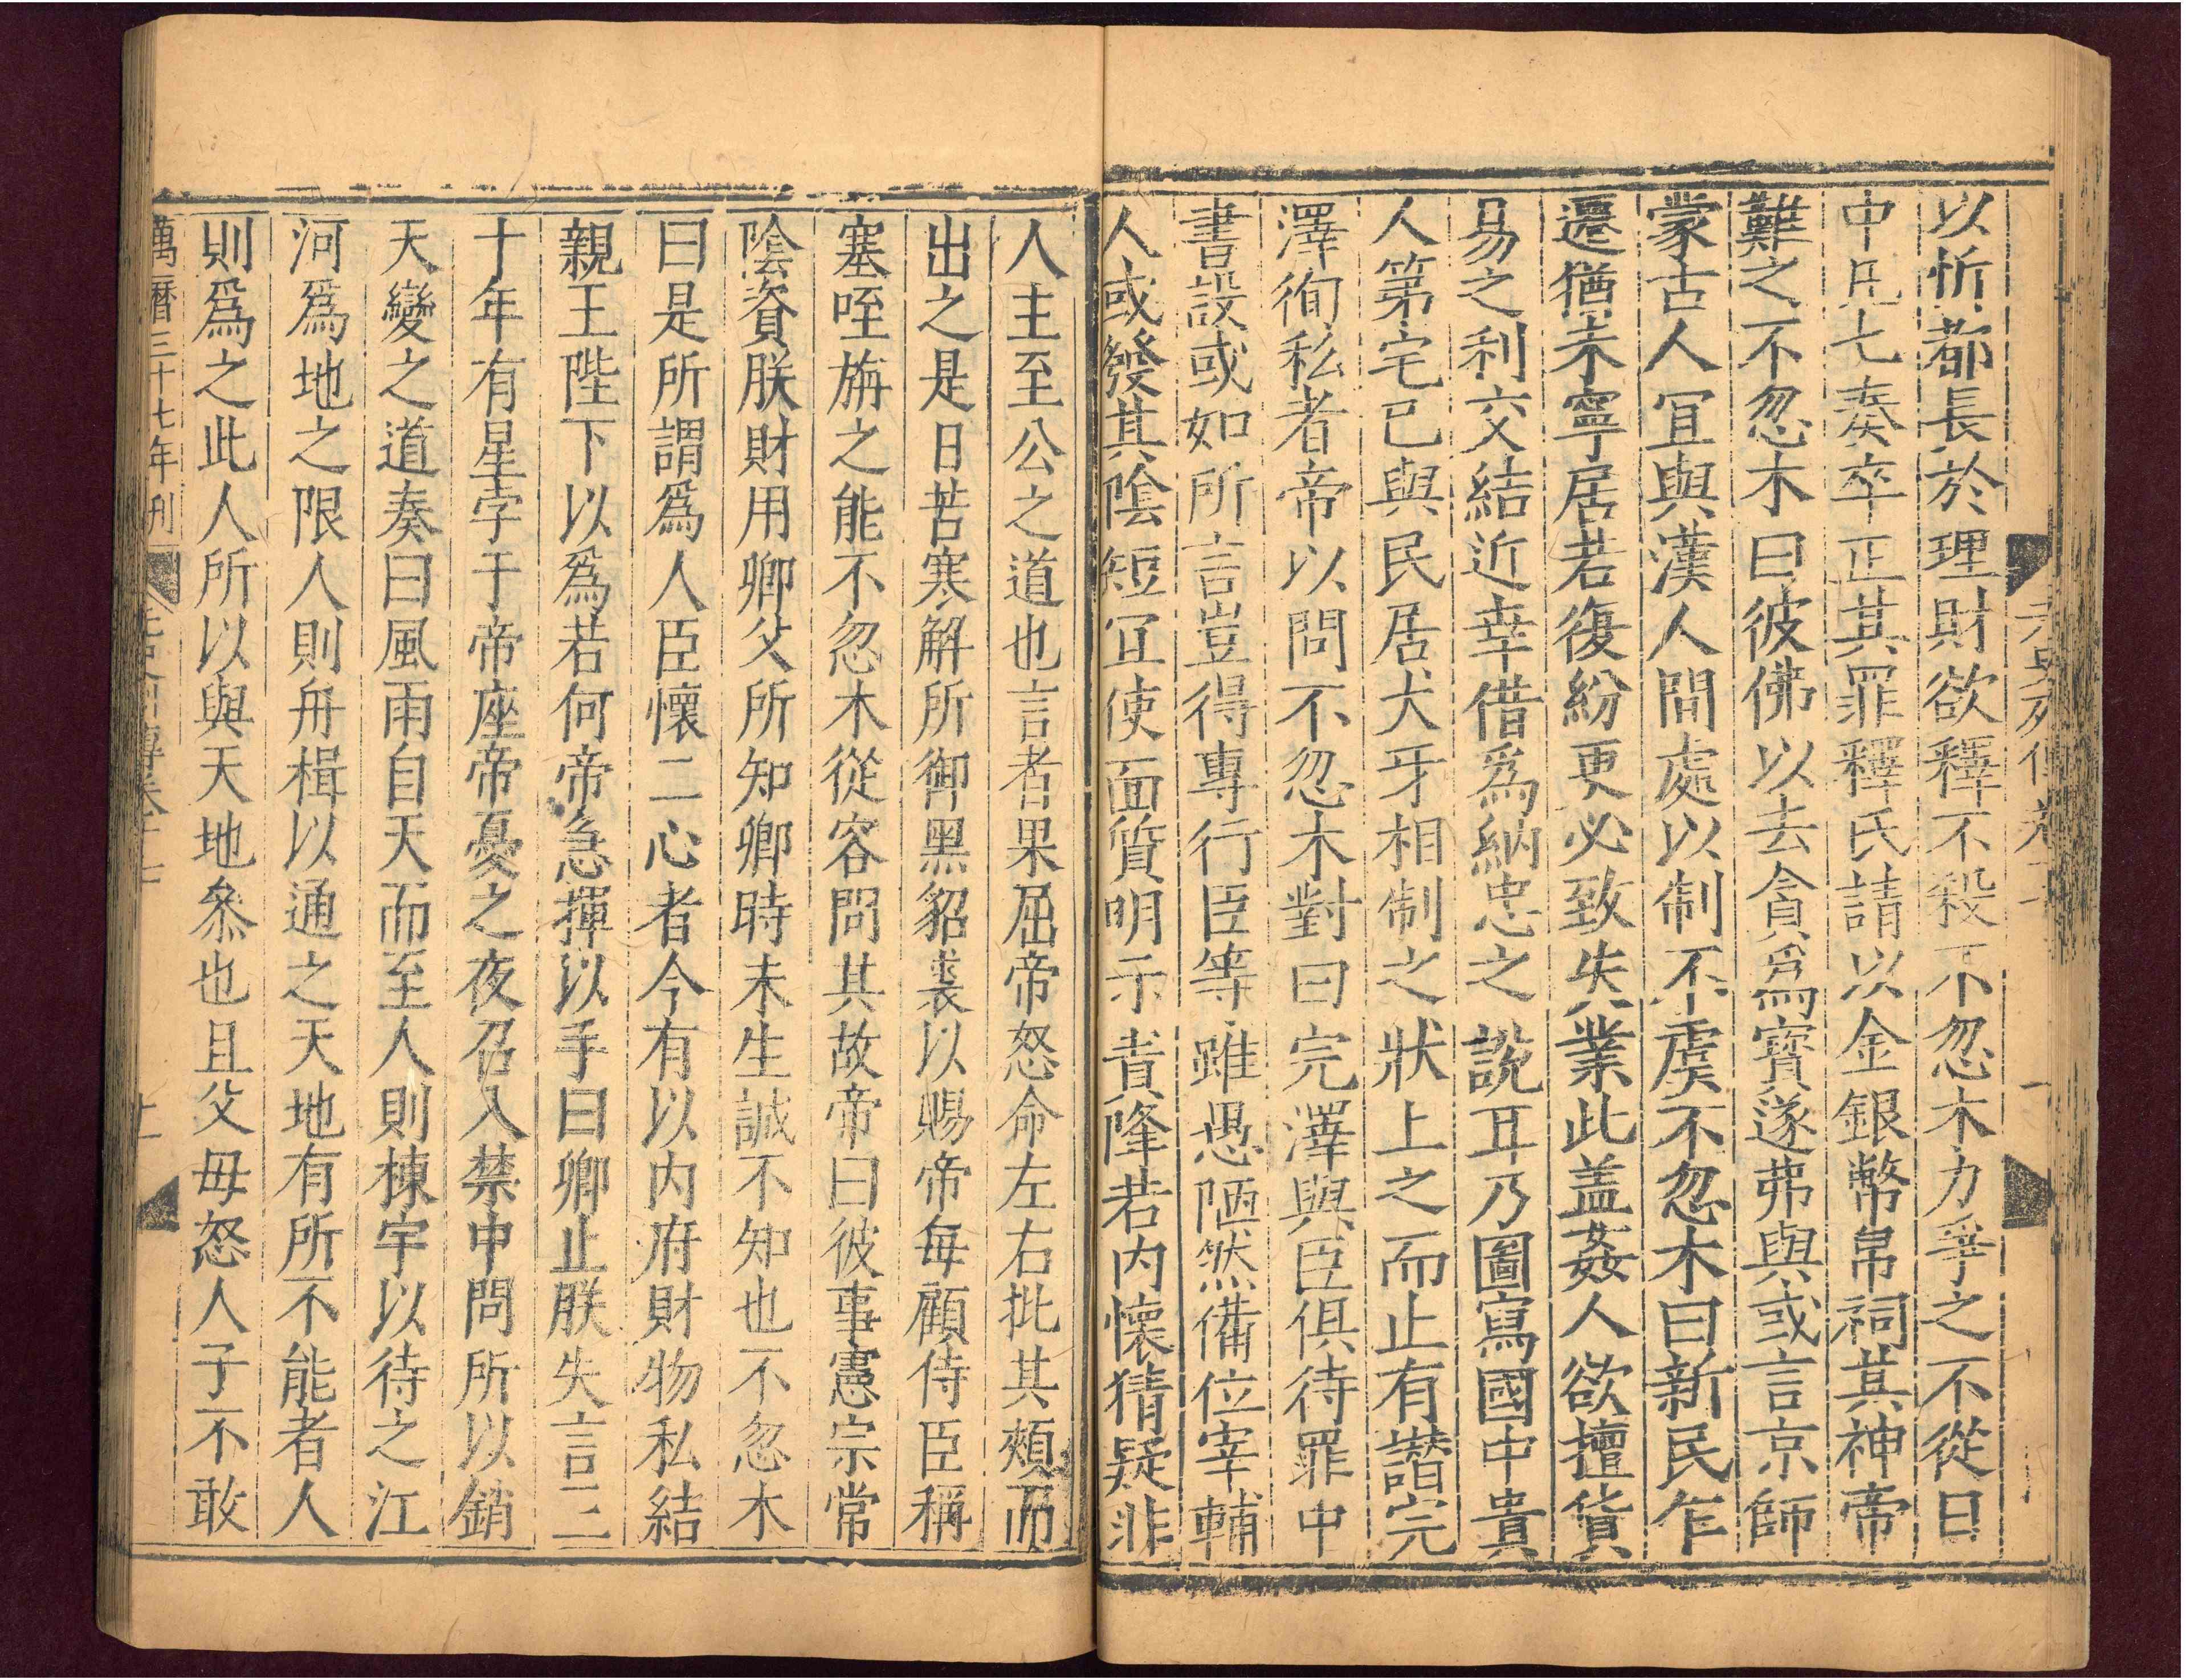 以忻都長於理財欲釋不殺不忽木力爭之不從日
中凡七奏卒正其罪釋氏請以金銀幣帛祠其神帝
難之不忽木曰彼佛以去貪爲寶遂弗與或言京師
蒙古人宜與漢人間處以制不虞不忽木曰新民乍
遷猶未寧居若復紛更必致失業此盖姦人欲擅貨
易之利交結近幸借爲納忠之說耳乃圖寫國中貴
人第宅已與民居犬牙相制之狀上之而止有譖完
澤徇私者帝以問不忽木對曰完澤與臣俱待罪中
書設或如所言豈得專行臣等雖愚陋然備位宰輔
人或發其陰短宜使面質明示責降若内懷猜疑非
人主至公之道也言者果屈帝怒命左右批其頰而
出之是日苦寒解所御黑貂裘以賜帝每顧侍臣稱
塞咥旃之能不忽木從容問其故帝曰彼事憲宗常
陰資朕財用卿父所知卿時未生誠不知也不忽木
曰是所謂爲人臣懷二心者今有以内府財物私結
親王陛下以爲若何帝急揮以手曰卿止朕失言三
十年有星孛于帝座帝憂之夜召入禁中問所以銷
天變之道奏曰風雨自天而至人則棟宇以待之江
河爲地之限人則舟楫以通之天地有所不能者人
則爲之此人所以與天地叅也且父母怒人子不敢
萬曆三十七年刊